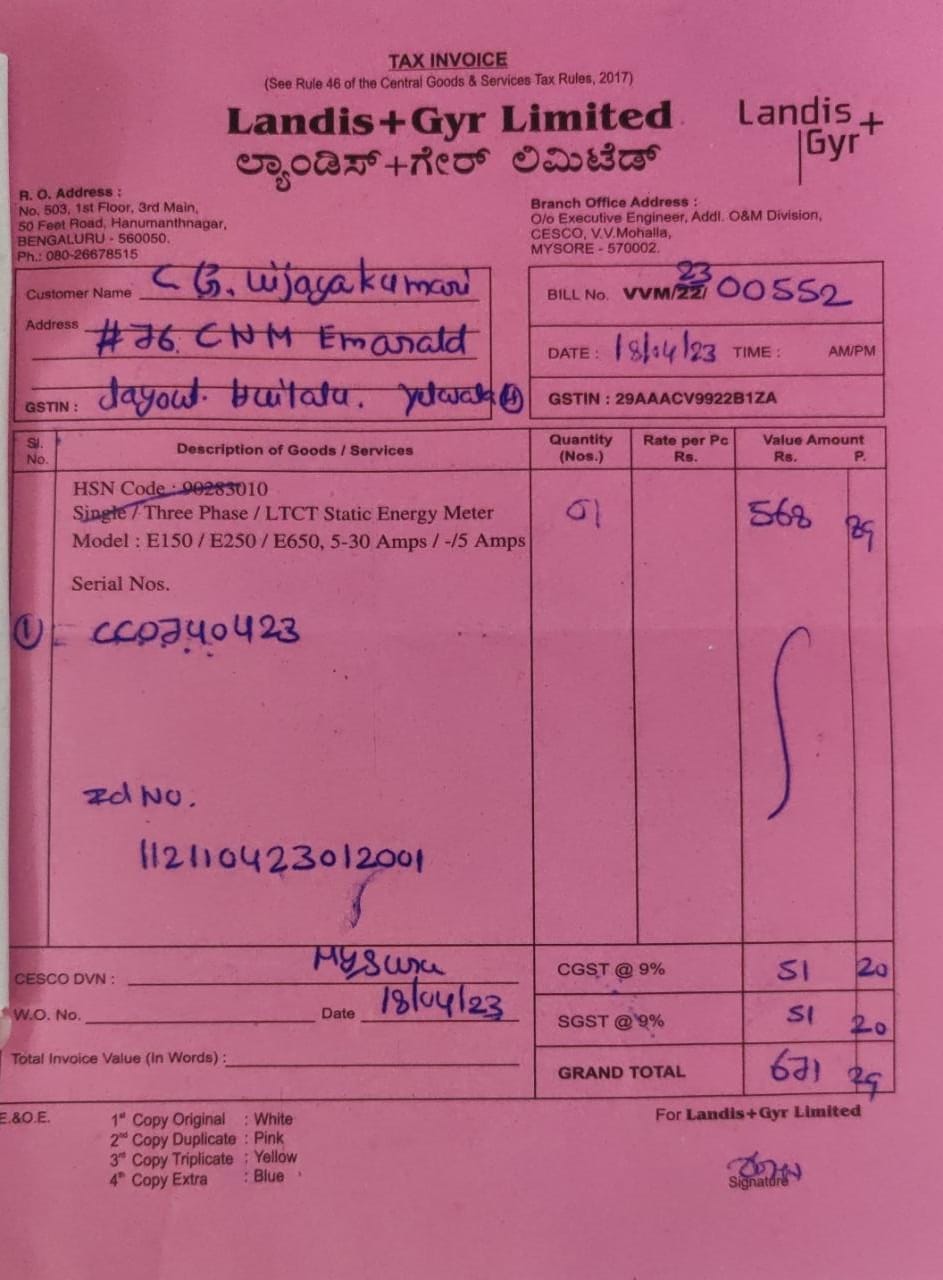 TAX INVOICE
(See Rule 46 of the Central Goods & Services Tax Rules, 2017)
Landis+Gyr Limited
ಲ್ಯಾಂಡಿಸ್+ಗೇರ್ ಲಿಮಿಟೆಡ್
Landis
Gyr+
R. O. Address :
No. 503, 1st Floor, 3rd Main,
50 Feet Road, Hanumanthnagar,
BENGALURU - 560050.
Ph.: 080-26678515
Branch Office Address :
O/o Executive Engineer, Addl. O&M Division,
CESCO, V.V.Mohalla,
MYSORE - 570002.
Customer Name C G. Wijayakumari
Address #76. CNM Emarald
GSTIN : Layout.
BILL No. VVM/22/ 23 00552
DATE : 18/04/23 TIME : AM/PM
GSTIN : 29AAACV9922B1ZA
Sl. No. Description of Goods / Services Quantity (Nos.) Rate per Pc Rs. Value Amount Rs. P.
HSN Code : 90283010
Single / Three Phase / LTCT Static Energy Meter 01 568
Model : E150 / E250 / E650, 5-30 Amps / -/5 Amps
Serial Nos.
① CC0740423
Zd No.
112110423012001
CESCO DVN : Mysuru
W.O. No. Date 18/04/23
Total Invoice Value (In Words) :
CGST @ 9% 51 20
SGST @ 9% 51 20
GRAND TOTAL 671
E.&O.E.
1st Copy Original : White
2nd Copy Duplicate : Pink
3rd Copy Triplicate : Yellow
4th Copy Extra : Blue
For Landis+Gyr Limited
Signature